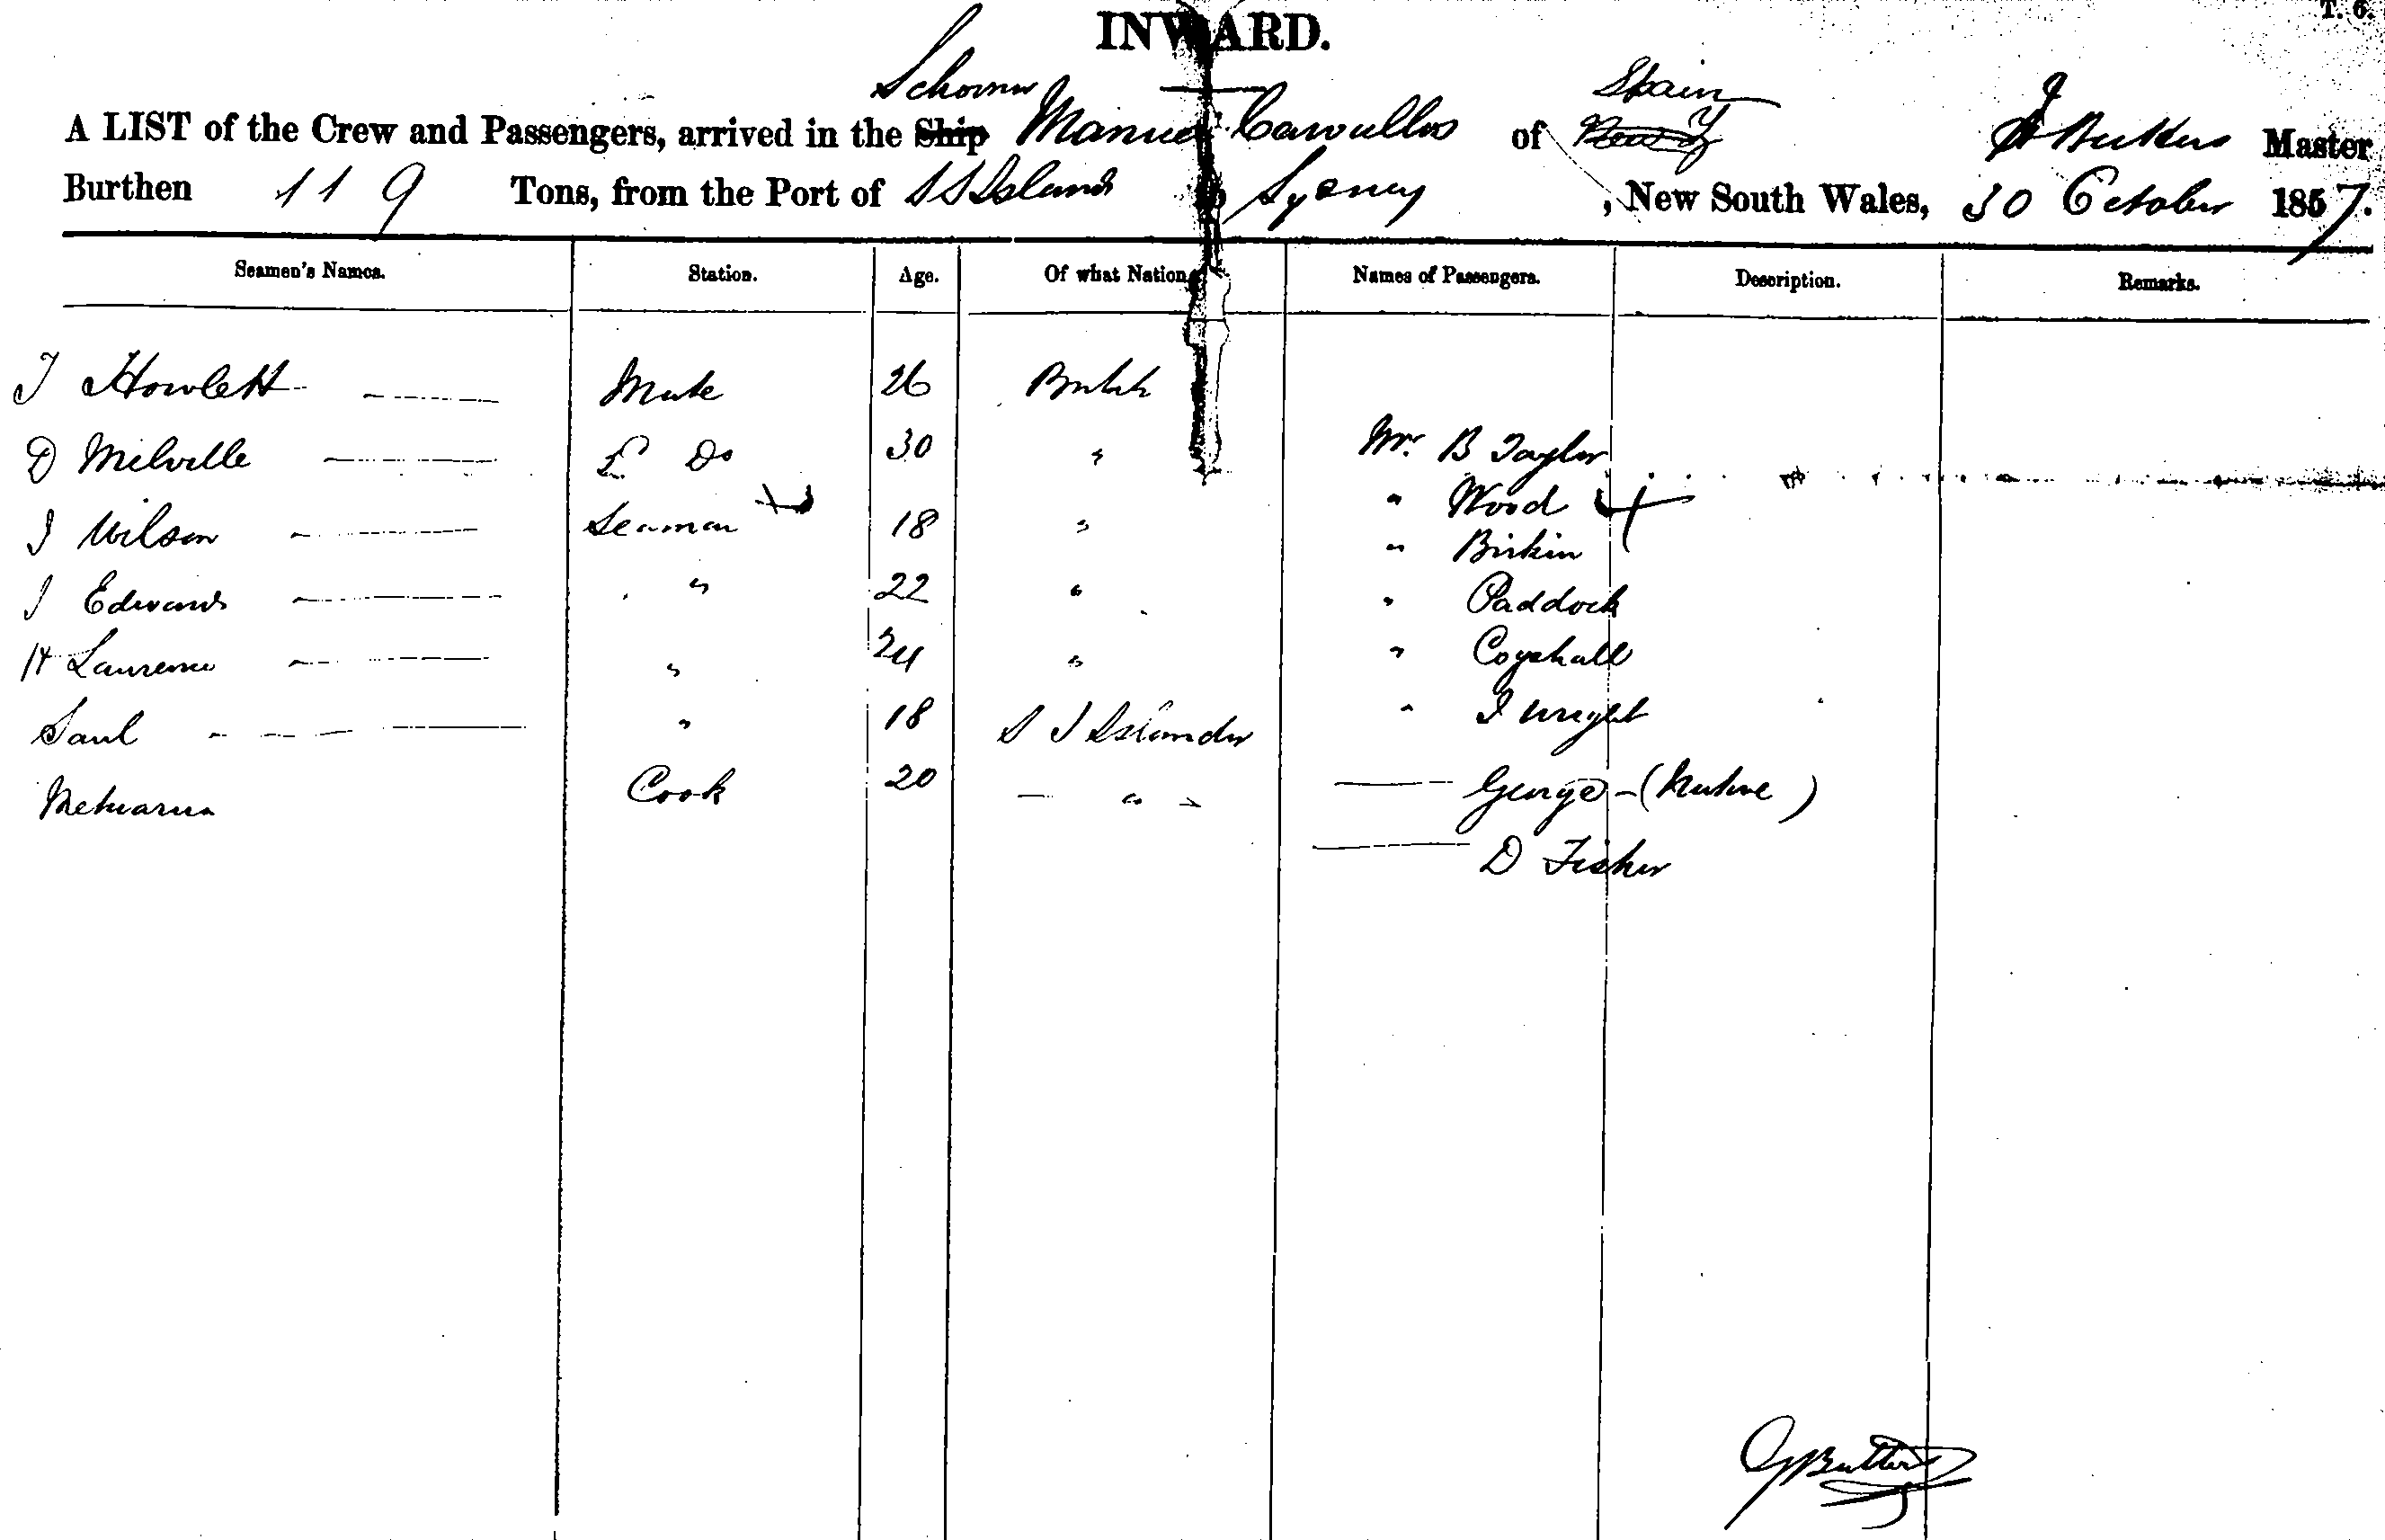 T. 6.
INWARD.
Schooner Spain J
A LIST of the Crew and Passengers, arrived in the Ship Manuel Carvallos of Master
Burthen 119 Tons, from the Port of S S Islands to Sydney, New South Wales, 30 October 1857.
Seamen's Names. Station. Age. Of what Nation. Names of Passengers. Description. Remarks.
T Howlett Mate 26 British
D Melville 2 Do 30 " Mr. B Taylor
" Wood
J Wilson Seaman 18 " " Birkin
J Edwards " 22 " " Paddock
H Laurence " 24 " " Cogshall
Saul " 18 S S Islander " J Wright
Cook 20 " " George - (Native)
D Fisher